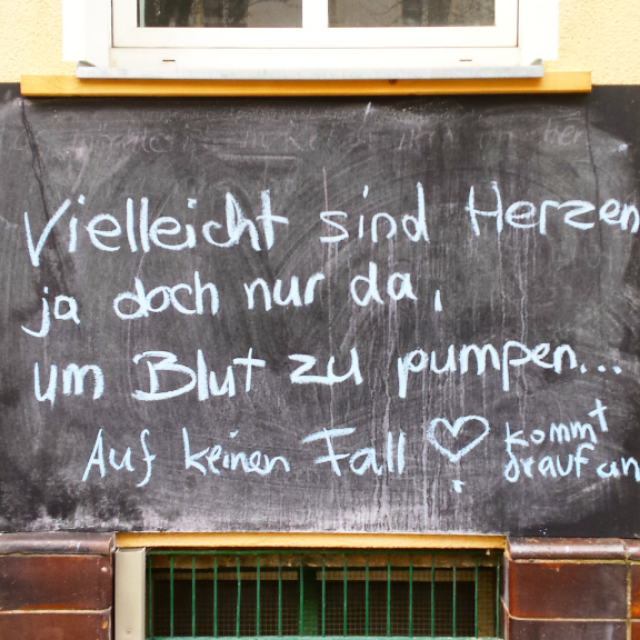 Vielleicht sind Herzen
ja doch nur da,
um Blut zu pumpen...
Auf keinen Fall !
kommt
drauf an